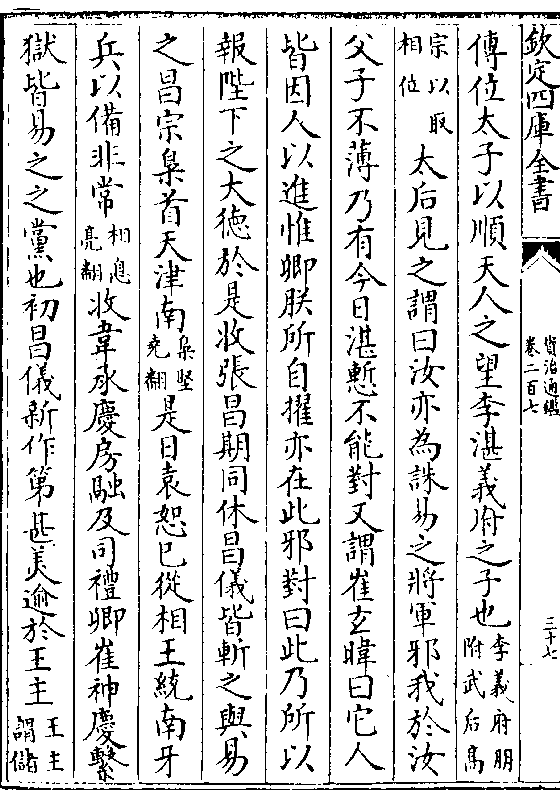 欽定四庫全書
資治通鑑
卷二百七
三十七
傳位太子以順天人之望李湛義府之子也李義府朋附武后高
宗以取相位太后見之謂曰汝亦為誅易之將軍邪我於汝
父子不薄乃有今日湛慙不能對又謂崔玄暐曰它人
皆因人以進惟卿朕所自擢亦在此邪對曰此乃所以
報陛下之大德於是收張昌期同休昌儀皆斬之與易
之昌宗梟首天津南梟堅堯翻是日袁恕已從相王統南牙
兵以備非常相息亮翻收韋承慶房融及司禮卿崔神慶繫
獄皆易之之黨也初昌儀新作第甚美逾於王主王主謂諸